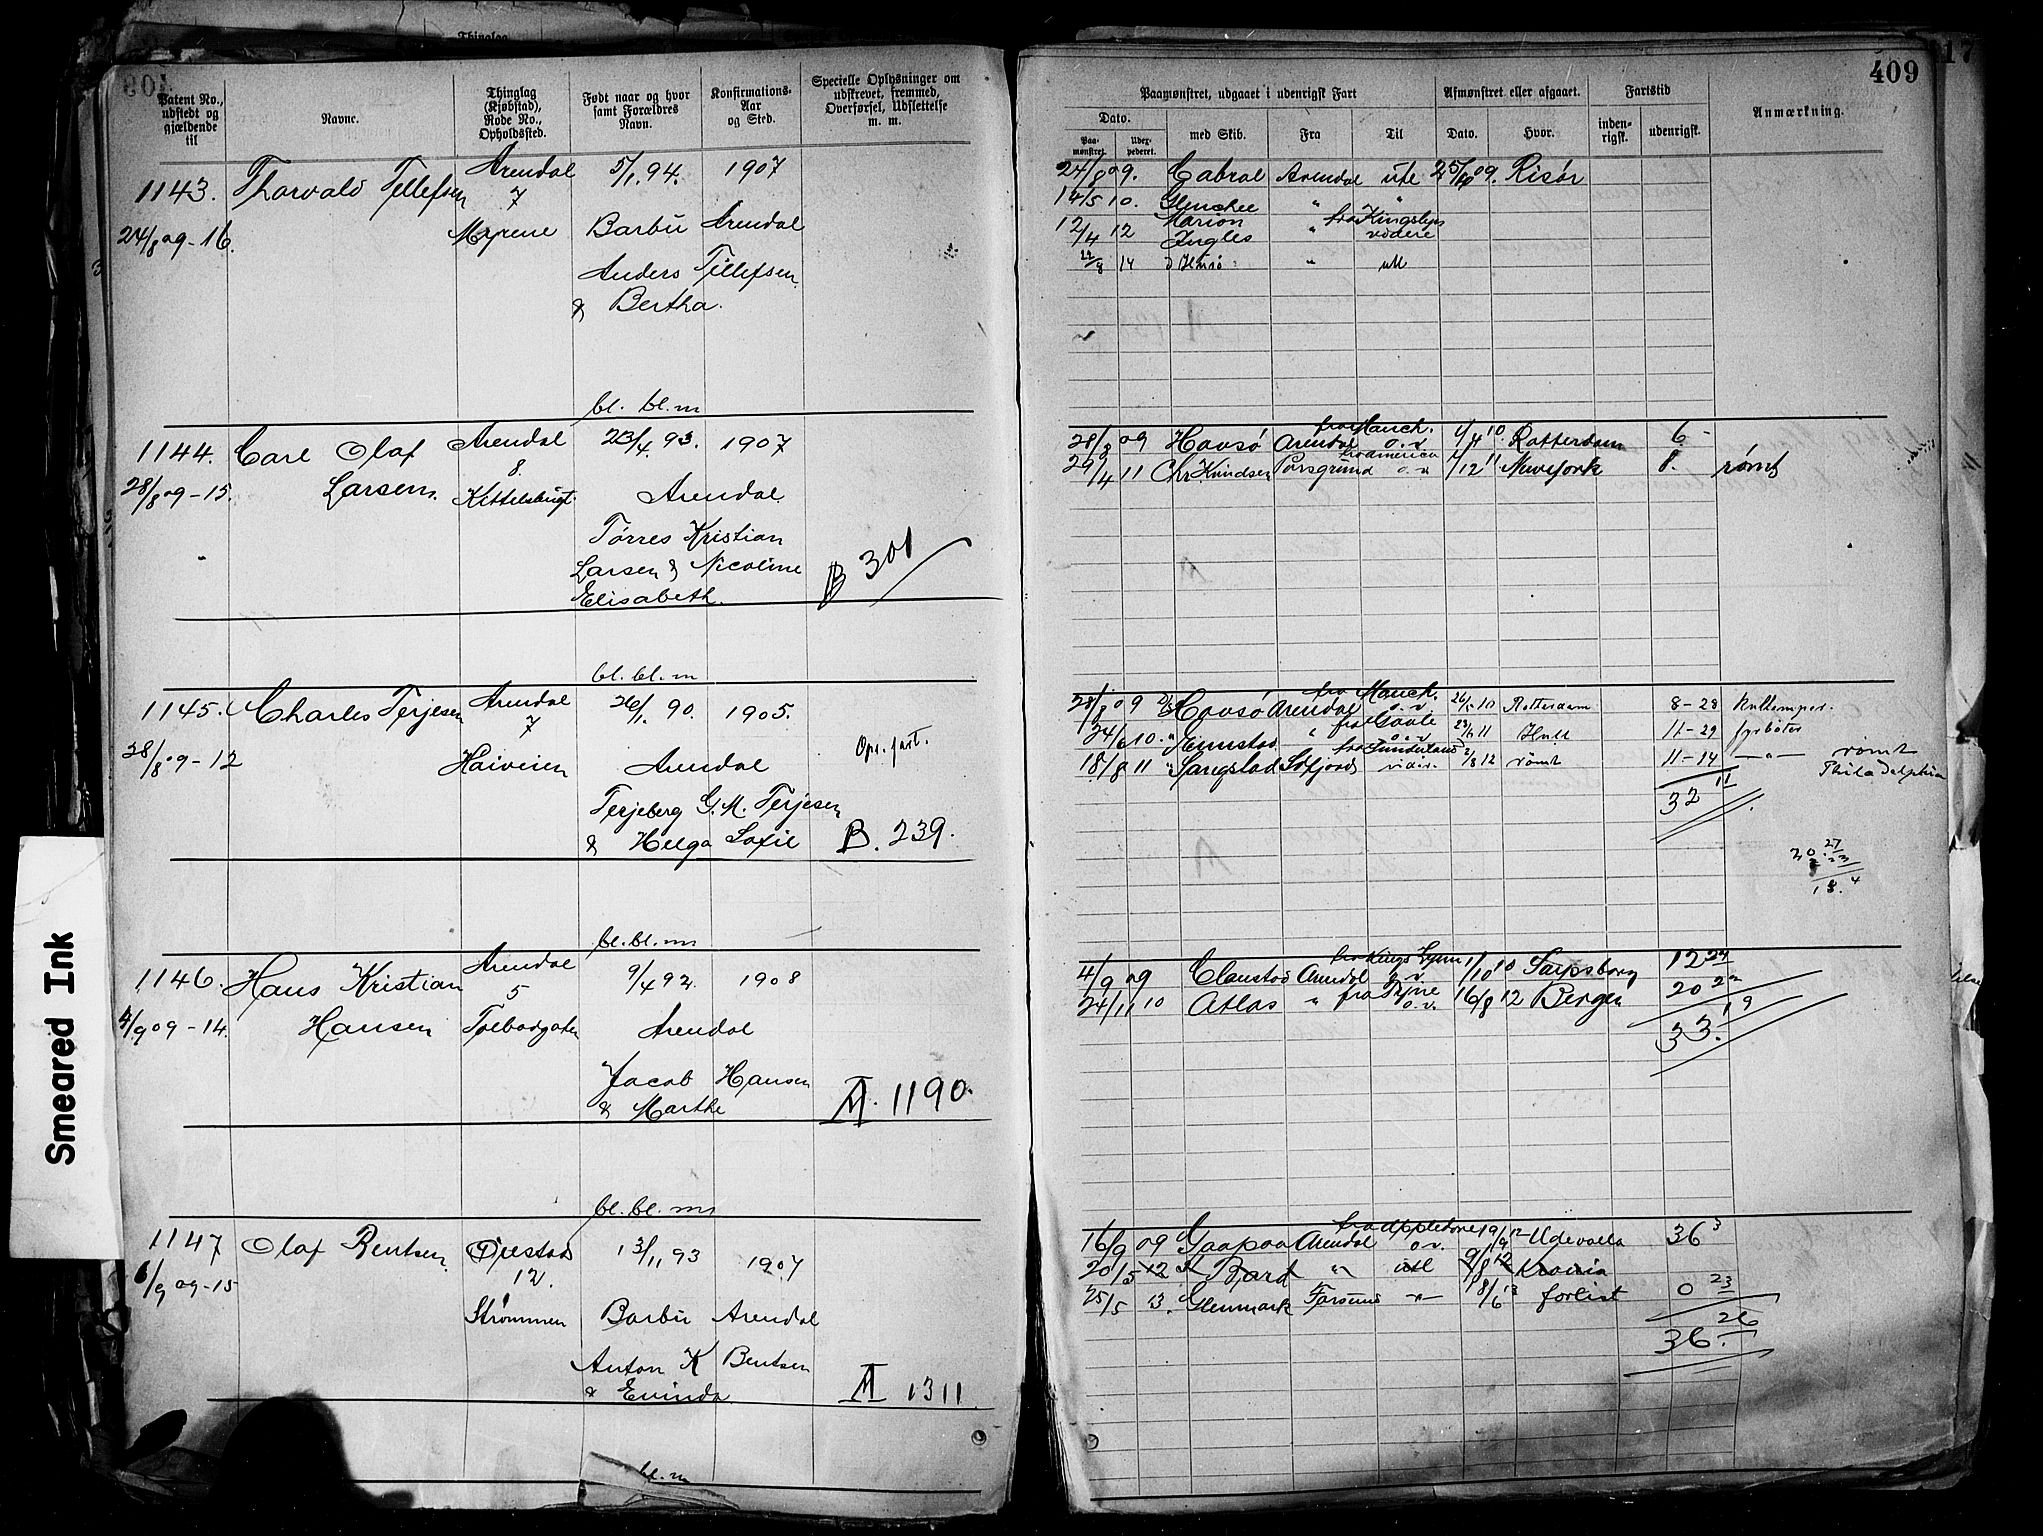 409
Patent No., udstedt og gjældende til
Navne.
Thinglag (Kjøbstad), Rode No., Opholdssted.
Født naar og hvor samt Forældres Navn.
Konfirmations-Aar og Sted.
Specielle Oplysninger om udskrevet, fremmed, Overførsel, Udslettelse m. m.
1143. Thorvald Tellefsen Arendal 5/1.94. 1907
7
24/8 09-16. Myrene Barbu Arendal
Anders Tellefsen
& Bertha.
bl. bl. m
1144. Carl Olaf Arendal 23/4 93. 1907
8.
28/8 09-15. Larsen. Kittelsbugt. Arendal
Tørres Kristian
Larsen & Nicoline
Elisabeth. B 301
bl. bl. m
1145. Charles Terjesen Arendal 26/1. 90. 1905.
7
28/8 09-12 Haiveien Arendal Opr. fart.
Terjeberg G. M. Terjesen
& Helga Sofie B. 239.
bl. bl. m
1146. Hans Kristian Arendal 9/4 92. 1908
5
4/9 09-14. Hansen Tolbodgaten Arendal
Jacob Hansen
& Marthe A. 1190.
bl. bl. m
1147 Olaf Bentsen Øiestad 13/11 93 1907
12.
6/9 09-15 Strømmen Barbu Arendal
Anton K Bentsen
& Evinda A 1311
bl. m
Paamønstret, udgaaet i udenrigsk Fart
Afmønstret eller afgaaet.
Fartstid
Anmærkning.
Dato.
Paamønstret.
med Skib.
Fra
Til
Dato.
Hvor.
indenrigsk.
udenrigsk.
24/8 09. Cabral Arendal ute 25/10 09. Risør
14/5 10. Glenshee " "
12/4 12 Marion Ingles " fra Kingslyn videre
22/8 14 " utl
28/8 09 Havsø Arendal fra Manch. o.v. 1/4 10. Rotterdam 6
29/4 11 Chr Knudsen Porsgrund fra America o.v 4/12 11 Newyork 8. rømt
28/8 09 Havsø Arendal fra Manch. o.v. 26/5 10 Rotterdam 8-28 Kullemper.
24/6 10. " Ennstad " fra Goole o.v 23/5 11 Hull 11-29 fyrbøter
18/8 11 " Sangstad Idfjord fra Sunderland vider. 2/8 12 rømt 11-14 —"— rømt Philadelphia
32 11
4/9 09 Clanstad Arendal fra Kings Lynn o.v. 1/10 10 Sarpsborg 12 27
24/11 10 Atlas " fra Tyne o.v. 16/8 12 Bergen 20 22
33. 19
16/9 09 Gaapaa Arendal fra Appledore o.v. 19/9 12 Udevalla 36 3
20/5 12 Bard " utl 9/8 12 Kronia
25/5 13. Glenmark Farsund —"— 18/6 13 forlist 0 23
36. 26
Smeared Ink